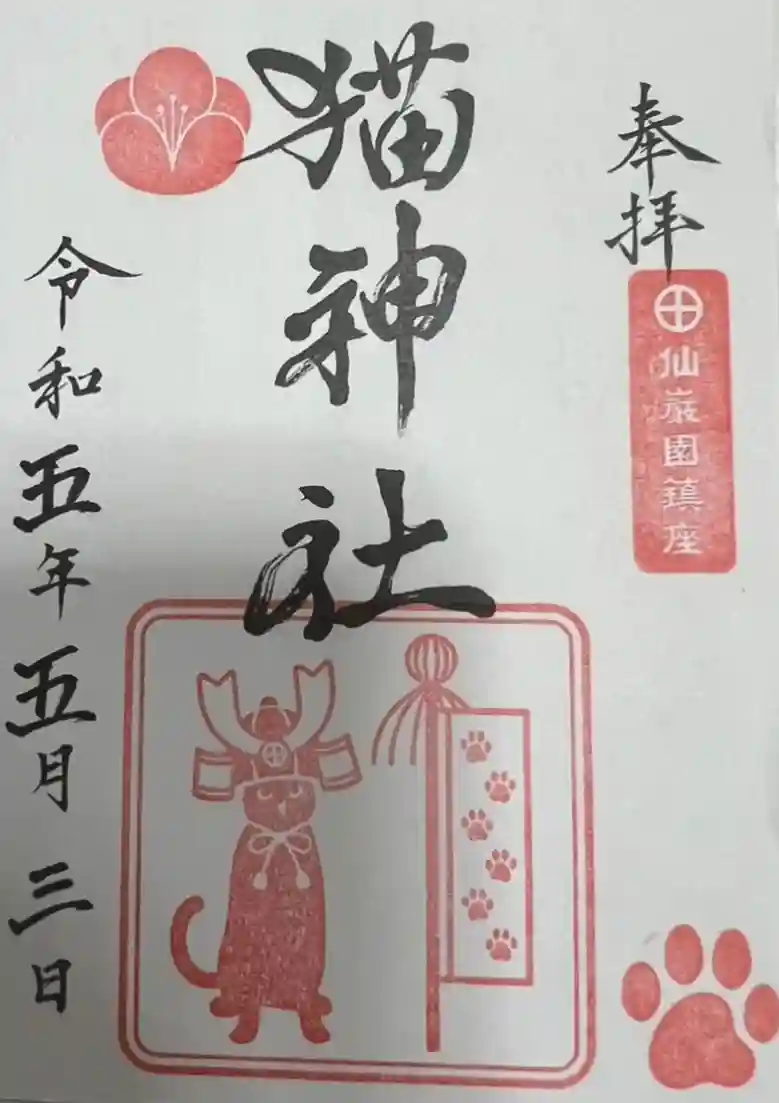 奉拝
仙巌園鎮座
猫神社
令和五年五月三日